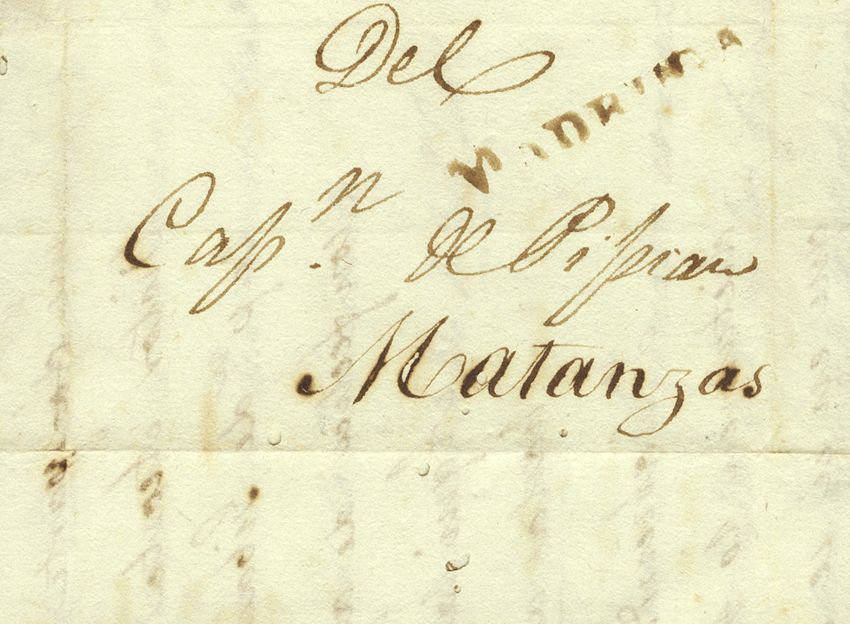 Del
MADRUGA
Cap.n de Pipian
Matanzas